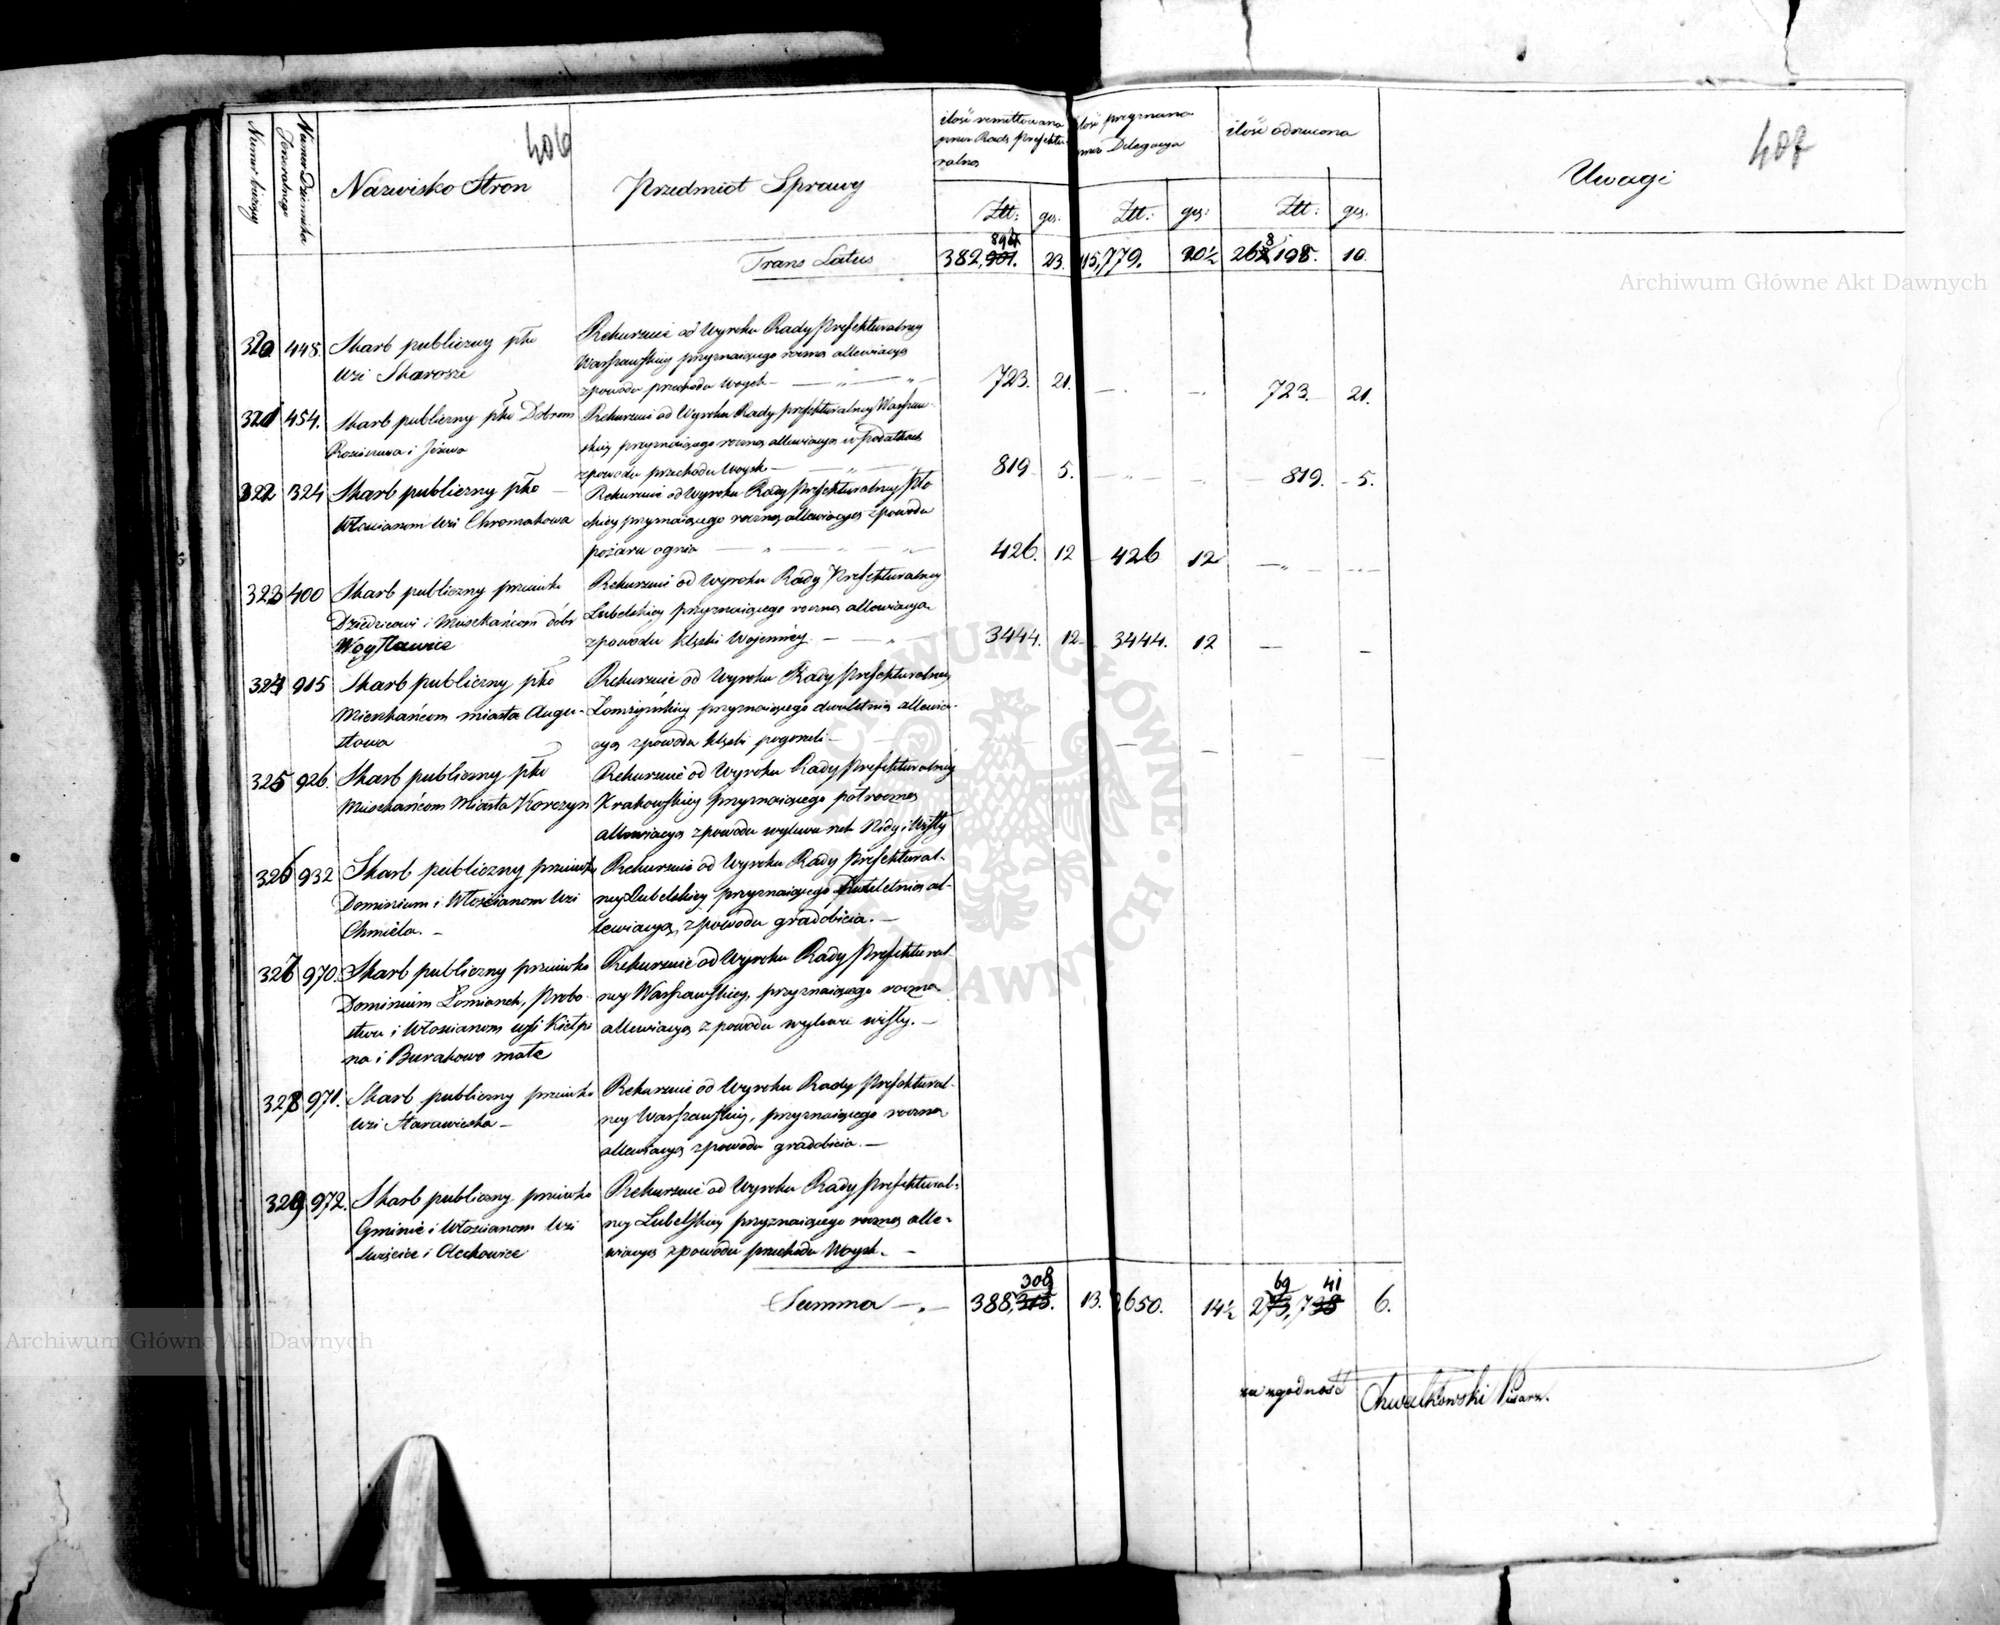 406
407
Numer bieżący
Numer Dziennika Jeneralnego
Nazwisko Stron
Przedmiot Sprawy
ilość remittowana przez Radę Prefekturalną
ilość przyznana przez Delegacyą
ilość odrzucona
Uwagi
Złt: gr. Złt: gr: Złt: gr.
Trans Latus 382,901. 23. 115,779. 20½ 268 198. 10.
320 448. Skarb publiczny pko Rekursuie od Wyroku Rady Prefekturalney
wsi Skarosze Warszawskiey przyznaiącego roczną allewiacyą
z powodu przechodu Woysk 723. 21. 723. 21.
321 454. Skarb publiczny pko Rekursuie od Wyroku Rady Prefekturalney Warszaw-
skiey przyznaiącego roczną allewiacyą w podatkach
z powodu przechodu Woysk 819 5. 819. 5.
322 324 Skarb publiczny pko Rekursuie od Wyroku Rady Prefekturalney Pło-
Włościanom wsi Chromakowa ckiey przyznaiącego roczną allewiacyą z powodu
pożaru ognia 426. 12 426 12
323 400 Skarb publiczny przeciwko Rekursuie od Wyroku Rady Prefekturalney
Dziedzicowi i Mieszkańcom dóbr Lubelskiey przyznaiącego roczną allewiacyą
Woysławice z powodu klęski Woienney. 3444. 12 3444. 12
324 915 Skarb publiczny pko Rekursuie od Wyroku Rady Prefekturalney
Mieszkańcom miasta Augu- Łomżyńskiey przyznaiącego dwuletnią allewia-
stowa cyą z powodu klęski pogorzeli
325 926. Skarb publiczny pko Rekursuie od Wyroku Rady Prefekturalney
Mieszkańcom Miasta Korczyn Krakowskiey przyznaiącego półroczną
allewiacyą z powodu wylewu rzek Nidy i Wisły
326 932 Skarb publiczny przeciwko Rekursuie od Wyroku Rady Prefektural-
Dominium i Włościanom wsi ney Lubelskiey przyznaiącego dwuletnią al-
Chmiela. lewiacyą, z powodu gradobicia.
327 970. Skarb publiczny przeciwko Rekursuie od Wyroku Rady Prefektural-
Dominium Łomianek, Probo- ney Warszawskiey, przyznaiącego roczną
stwu i Włościanom wsi Kiełpi allewiacyą z powodu wylewu wisły.
na i Burakowo małe
328 971. Skarb publiczny przeciwko Rekursuie od Wyroku Rady Prefektural-
wsi Starawieska ney Warszawskiey, przyznaiącego roczną
allewiacyą z powodu gradobicia.
329 972. Skarb publiczny przeciwko Rekursuie od Wyroku Rady Prefektural-
Gminie i Włościanom wsi ney Lubelskiey przyznaiącego roczną alle-
i Olechowice wiacyą z powodu przechodu Woysk.
Summa 388, 308 13. 650. 14½ 269,741 6.
za zgodność Chwalkowski Pisarz.
Archiwum Główne Akt Dawnych
Archiwum Główne Akt Dawnych
ARCHIWUM GŁÓWNE AKT DAWNYCH